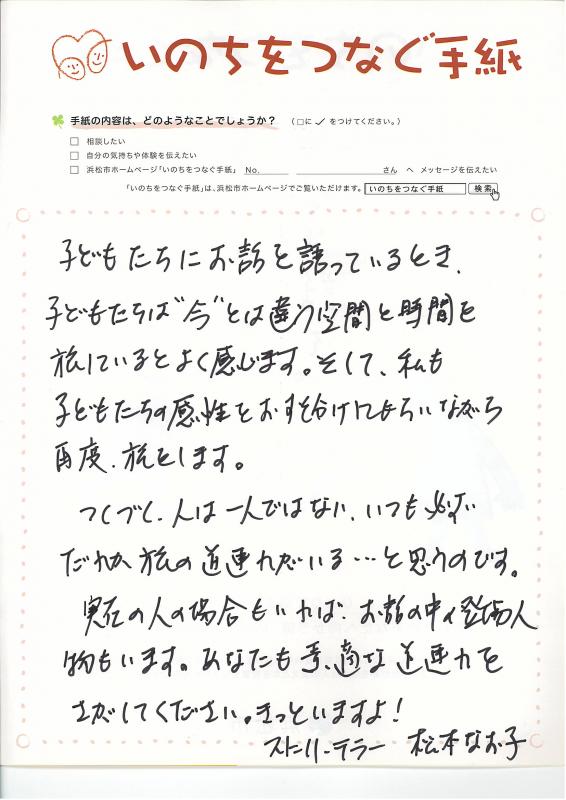 いのちをつなぐ手紙
手紙の内容は、どのようなことでしょうか？ （□に✓をつけてください。）
□ 相談したい
□ 自分の気持ちや体験を伝えたい
□ 浜松市ホームページ「いのちをつなぐ手紙」 No. さん へ メッセージを伝えたい
「いのちをつなぐ手紙」は、浜松市ホームページでご覧いただけます。 いのちをつなぐ手紙 検索
子どもたちにお話を語っているとき、
子どもたちは"今"とは違う空間と時間を
旅しているとよく感じます。そして、私も
子どもたちの感性をおすそ分けしてもらいながら
再度、旅をします。
つくづく、人は一人ではない、いつも必ず
だれか旅の道連れがいる…と思うのです。
実在の人の場合もいれば、お話の中の登場人
物もいます。あなたも素適な道連れを
さがしてください。きっといますよ！
ストーリーテラー 松本なお子